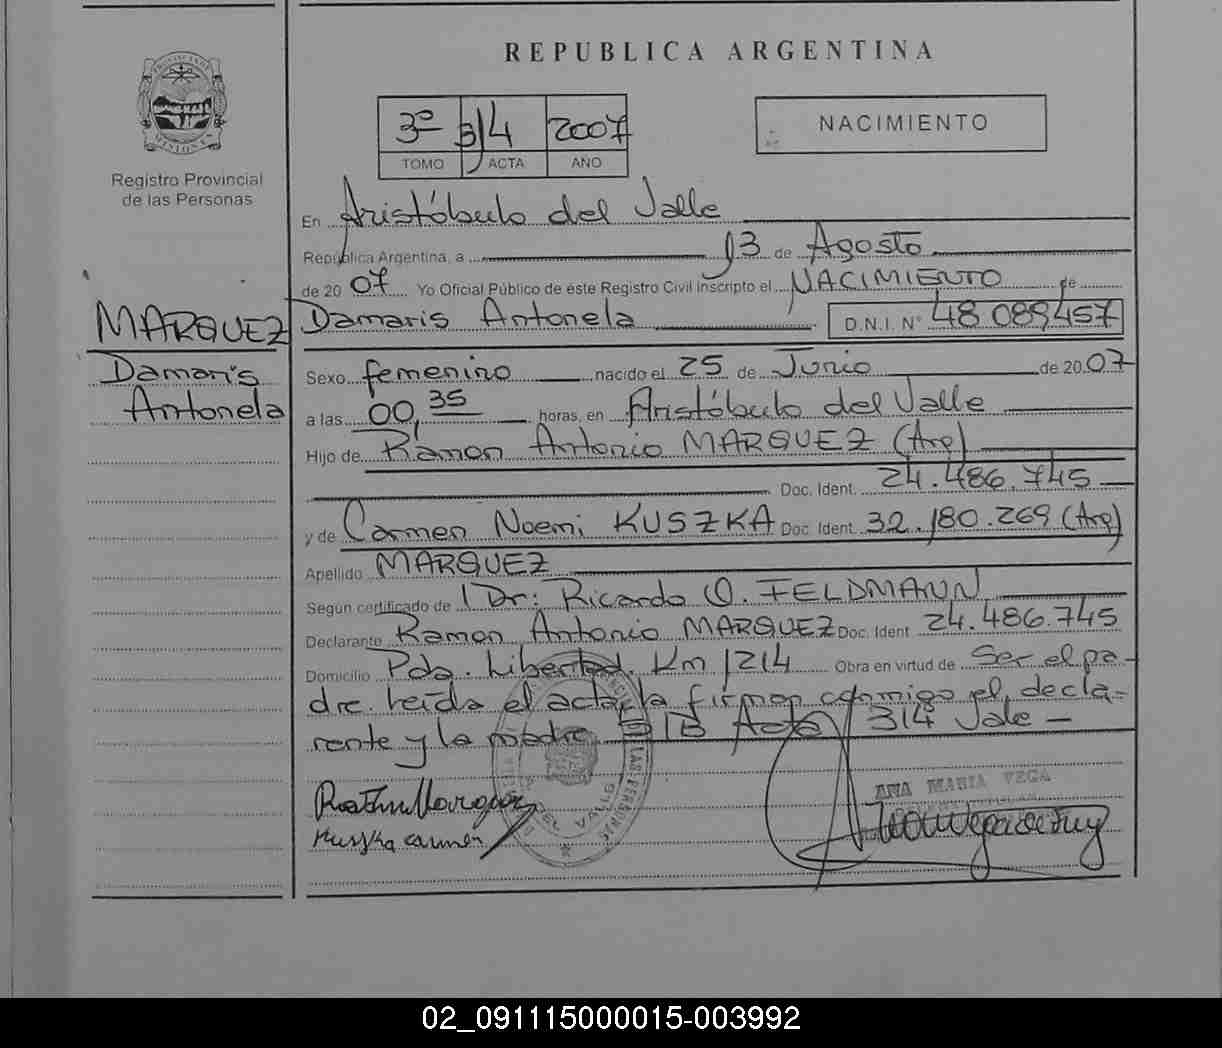 REPUBLICA ARGENTINA
PROVINCIA DE MISIONES
Registro Provincial
de las Personas
3º 314 2007
TOMO ACTA AÑO
NACIMIENTO
En Aristóbulo del Valle
República Argentina, a 13 de Agosto
de 20 07 Yo Oficial Público de este Registro Civil inscripto el NACIMIENTO de
MARQUEZ
Damaris
Antonela
Damaris Antonela D.N.I. Nº 48 089457
Sexo femenino nacido el 25 de Junio de 20 07
a las 00,35 horas, en Aristóbulo del Valle
Hijo de Ramon Antonio MARQUEZ (Arg)
Doc. Ident. 24.486.745
y de Carmen Noemi KUSZKA Doc. Ident. 32.180.269 (Arg)
Apellido MARQUEZ
Según certificado de Dr: Ricardo O. FELDMANN
Declarante Ramon Antonio MARQUEZ Doc. Ident 24.486.745
Domicilio Pda. Libertad. Km 1214 Obra en virtud de Ser el pa-
dre. Leída el acta, la firman conmigo el decla-
rante y la madre. Acta 314 Vale -
ANA MARIA VEGA
Kuszka carmen
DEL VALLE
LAS PERSONAS
02_091115000015-003992